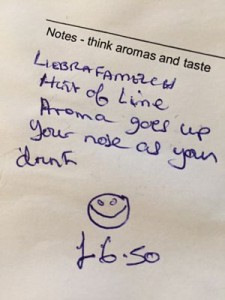 Notes - think aromas and taste
LIEBRAFAMELCH
Hint of Lime
Aroma goes up
your nose as your
drink
£6.50